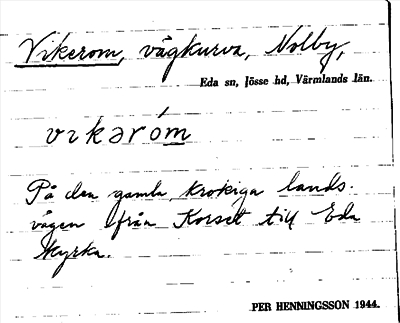 Vikerom, vägkurva, Nolby,
Eda sn, Jösse hd, Värmlands län.
vıkəróm
På den gamla krokiga lands-
vägen från Korset till Eda
kyrka.
PER HENNINGSSON 1944.